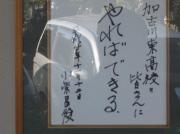 加古川東高校の
皆さんに
やればできる
小柴昌俊